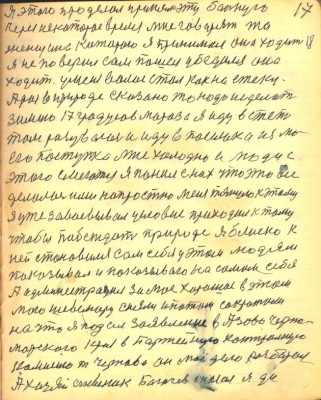 17
Я этого проделал принял эту бабушку
Через некоторое время мне говорят та
женщина которою я принимал она ходит 18
я не поверил сам пошел убедился она
ходит. у меня волос стал как на стеки.
А раз в природе сказано то надо делать
зимою 17 градусов мороза я иду в степ
там разувался и иду в посилка из мо-
его поступка мне холодно и люди с
этого смеются я понял
делал или напростно меня тянуло к этому
я уже завоевывал условие приходил к тому
чтобы побеждать природе я близко к
ней становился сам себя у этом людям
показывал и показываю на самим себя
А администрация за мое хорошое в этом
мою шевелюру сняли и потом сократили
на что я подал заявление в Азово Черно-
морского края в Партейную контрольную
комисию т Чернова он мое дело разбирал
А хозяй союзник Багачев сказал я да